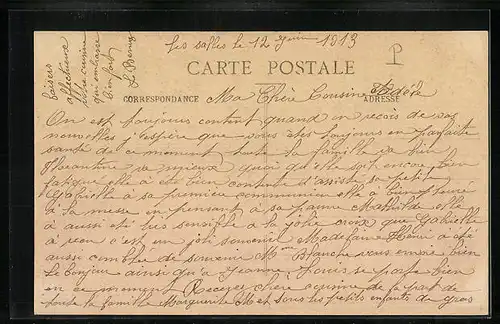 Les salles le 12 Juin 1913
P
CARTE POSTALE
CORRESPONDANCE
ADRESSE
Ma Chère Cousine
On est toujours content quand on reçois de vos
nouvelles j'espère que vous êtes toujours en parfaite
santé de ce moment toute la famille va bien
va mieux quoi qu'elle soit encore bien
fatiguée elle a été bien contente d'assisté sa petite
Gabrielle à sa première communion elle à bien pleuré
à la messe en pensant à sa Mathilde elle
a aussi été très sensible à la jolie croix que Gabrielle
à reçu c'est un joli souvenir Henri a été
aussi comblée de souvenir Mme Blanche vous envoie bien
le bonjour ainsi qu'a Jeanne Louis se porte bien
en ce moment Recevez chère cousine de la part de
toute la famille Marguerite et tous les petits enfants de gros
baisers
affectueux
votre cousine
qui embrasse
bien fort